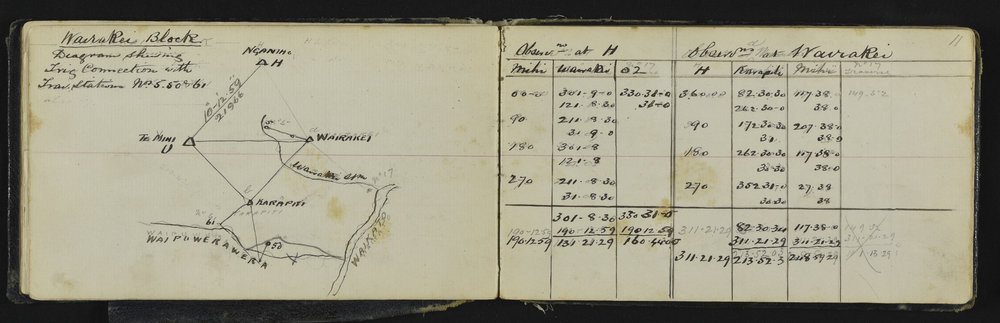 Wairakei Block
Diagram shewing
Trig Connection with
Trav. Stations Nos 5. 50 & 61
H
10-12-59
21966
Te Mihi
U
WAIRAKEI
Wairakei Stm
No 17
KARAPITI
61
WAIPUWERAWERA
50
WAIKATO
11
Observns at H
Mihi Wairakei 02
00-0 301-9-0 330.38-0
121-8.30 38-0
90 211-8-30
31-9-0
180 301-8
121-8
270 211-8-30
31-8-30
301-8-30
190-12-59 190-12-59 190-12-59
190-12-59 131-21-29
Observns at Wairakei
H Karapiti Mihi No 17 Traverse
360.00 82-30-30 117-38-0 149-52
262-30-0 38-0
90 172-30-30 207-38-0
38-0
180 262-30-30 117-38-0
30-30 38.0
270 352-31-0 27-38
30-30 38
311-21-29 82-30-30 117-38-0
311-21-29 311-21-29
311-21-29 213-52-